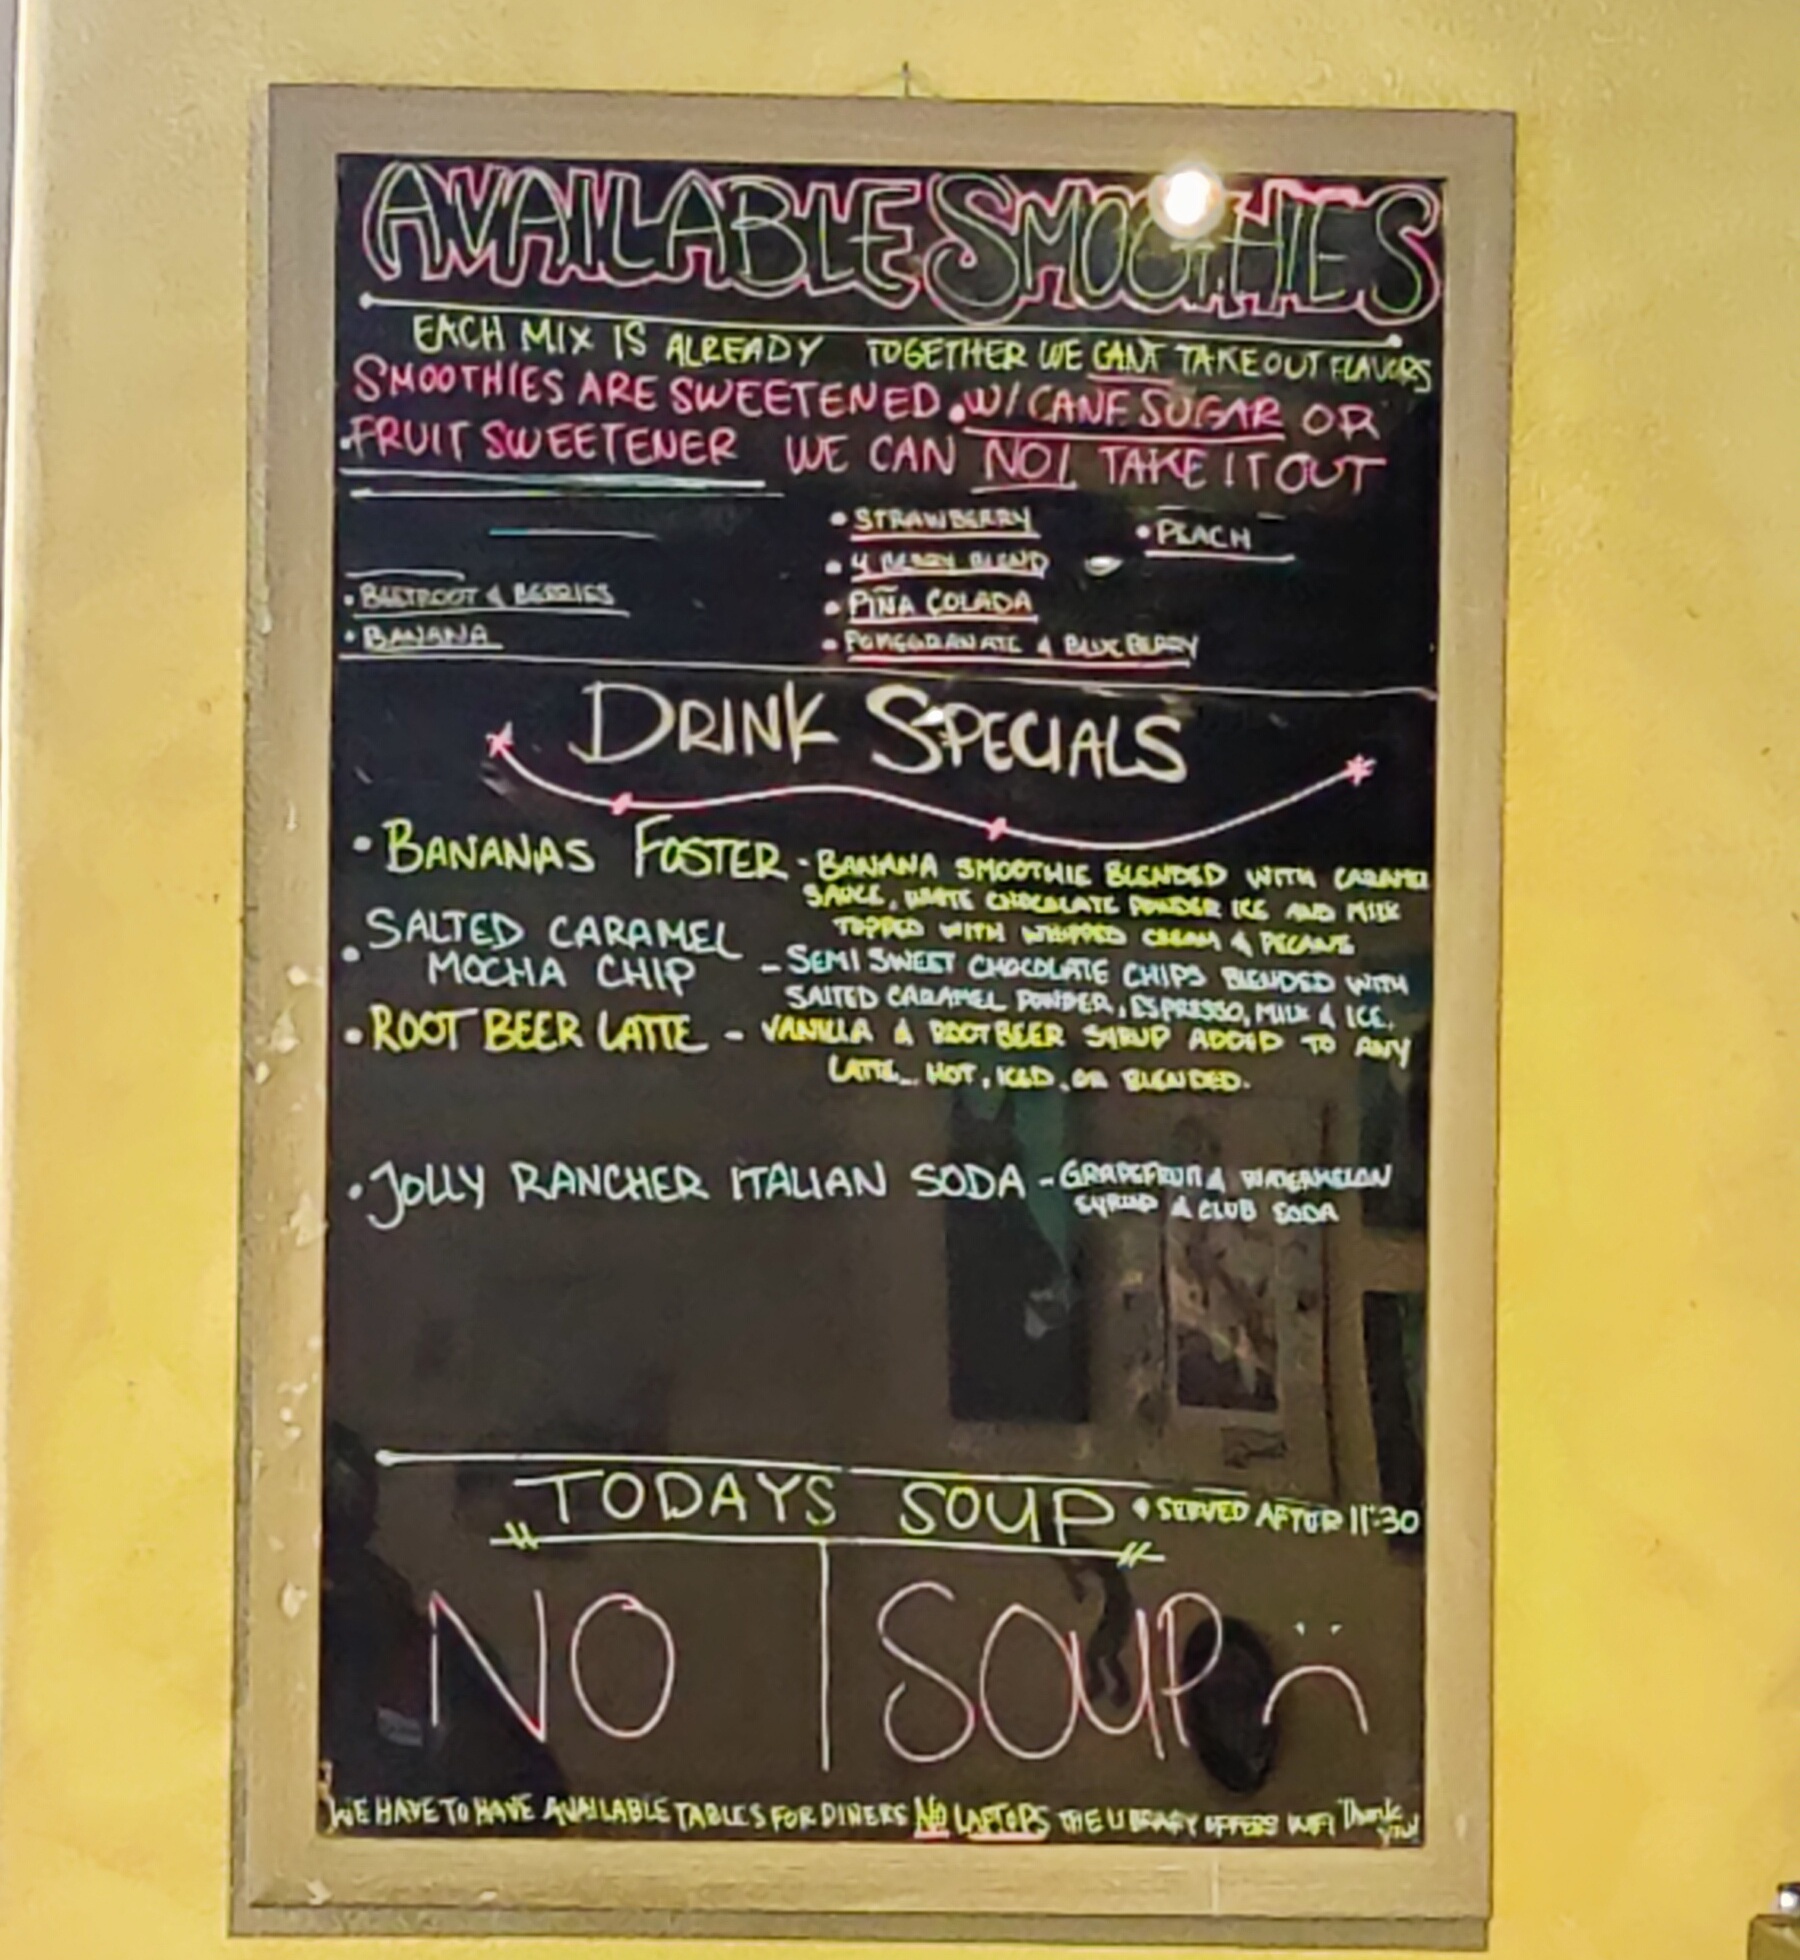 AVAILABLE SMOOTHIES
EACH MIX IS ALREADY TOGETHER WE CANT TAKE OUT FLAVORS
SMOOTHIES ARE SWEETENED W/ CANE SUGAR OR
FRUIT SWEETENER WE CAN NOT TAKE IT OUT
• BEETROOT & BERRIES
• BANANA
• STRAWBERRY
• 4 BERRY BLEND
• PIÑA COLADA
• POMEGRANATE & BLUEBERRY
• PEACH
DRINK SPECIALS
• BANANAS FOSTER - BANANA SMOOTHIE BLENDED WITH CARAMEL
SAUCE, WHITE CHOCOLATE POWDER ICE AND MILK
TOPPED WITH WHIPPED CREAM & PECANS
• SALTED CARAMEL
MOCHA CHIP - SEMI SWEET CHOCOLATE CHIPS BLENDED WITH
SALTED CARAMEL POWDER, ESPRESSO, MILK & ICE.
• ROOT BEER LATTE - VANILLA & ROOTBEER SYRUP ADDED TO ANY
LATTE... HOT, ICED, OR BLENDED.
• JOLLY RANCHER ITALIAN SODA - GRAPEFRUIT & WATERMELON
SYRUP & CLUB SODA
TODAYS SOUP • SERVED AFTER 11:30
NO SOUP :(
WE HAVE TO HAVE AVAILABLE TABLES FOR DINERS NO LAPTOPS THE LIBRARY OFFERS WIFI Thank you!